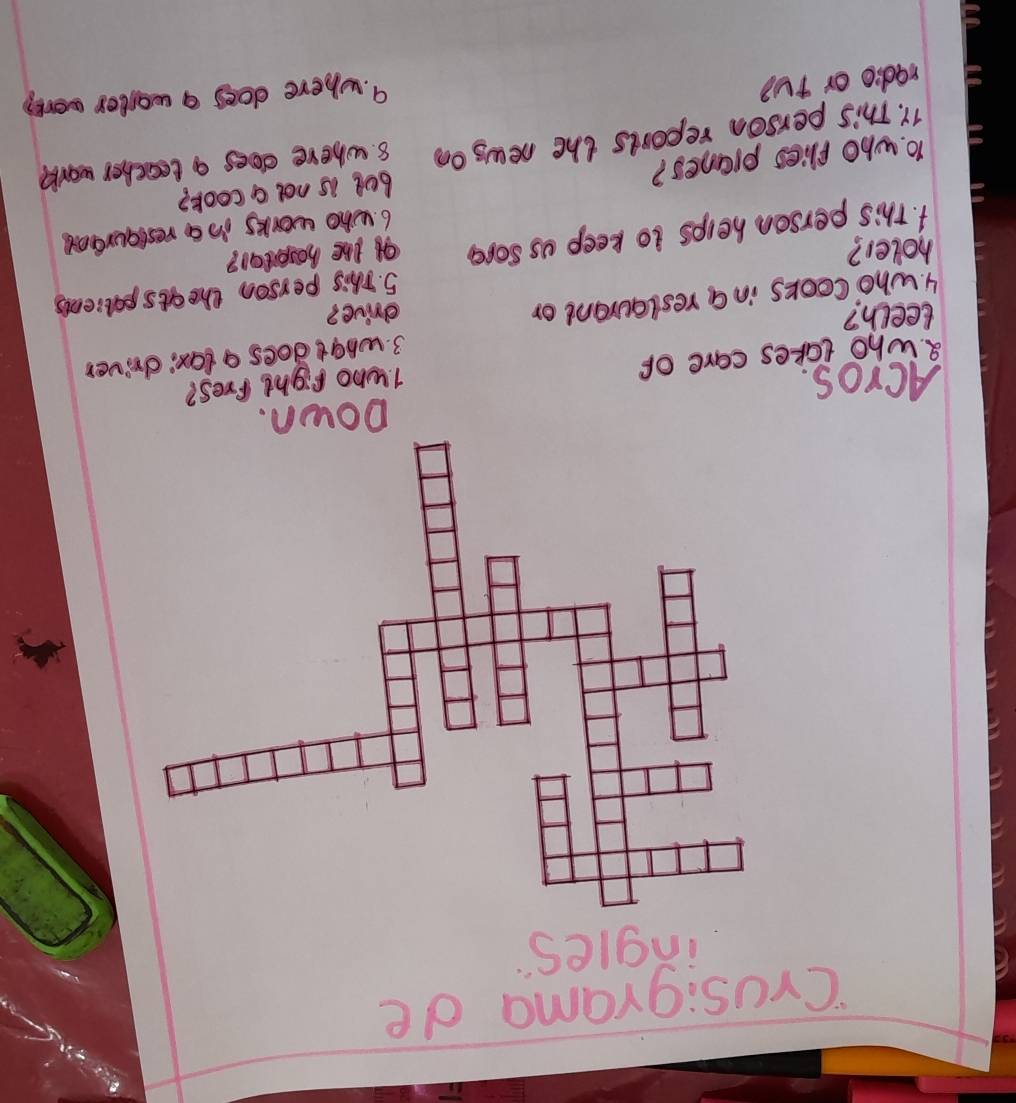 "Crusigrama de
ingles"
Acros.
2. who takes care of
teeth?
4. who cooks in a restaurant or
hotel?
7. This person helps to keep us
10. who flies planes?
11. This person reports the news on
radio or TV?
Down.
1. who fight fires?
3. what does a taxi driver
drive?
5. This person the ats patients
at the hospital?
6. who works in a restaurant
but is not a cook?
8. where does a teacher work?
9. where does a waiter work?